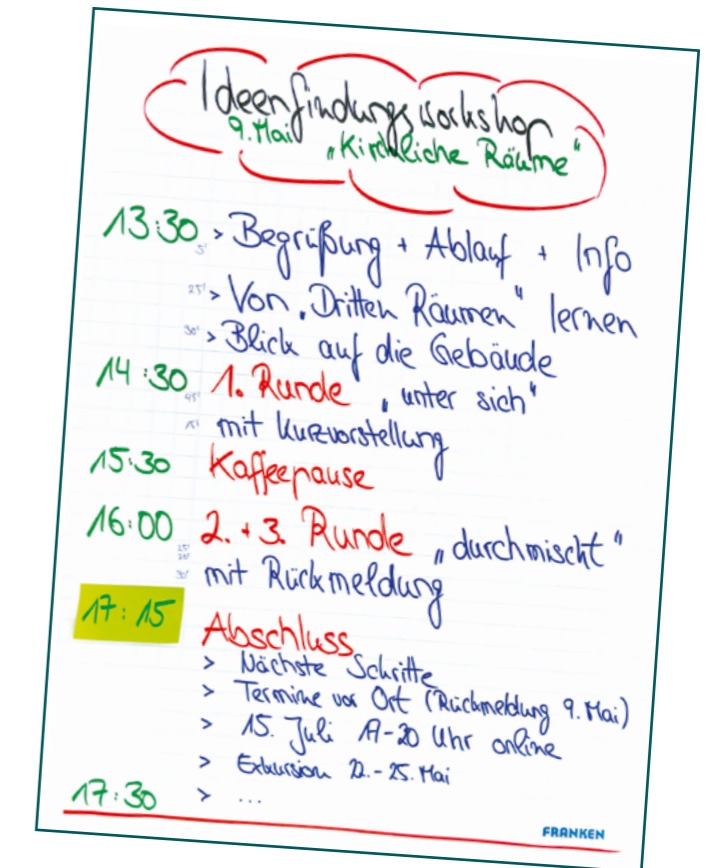 Ideenfindungsworkshop
9. Mai „Kirchliche Räume"
13:30 > Begrüßung + Ablauf + Info
5'
25' > Von „Dritten Räumen" lernen
30' > Blick auf die Gebäude
14:30 1. Runde „unter sich"
45'
15' mit Kurzvorstellung
15:30 Kaffeepause
16:00 2. + 3. Runde „durchmischt"
25'
20'
30' mit Rückmeldung
17:15
Abschluss
> Nächste Schritte
> Termine vor Ort (Rückmeldung 9. Mai)
> 15. Juli 19-20 Uhr online
> Exkursion 22.-25. Mai
17:30 > ...
FRANKEN